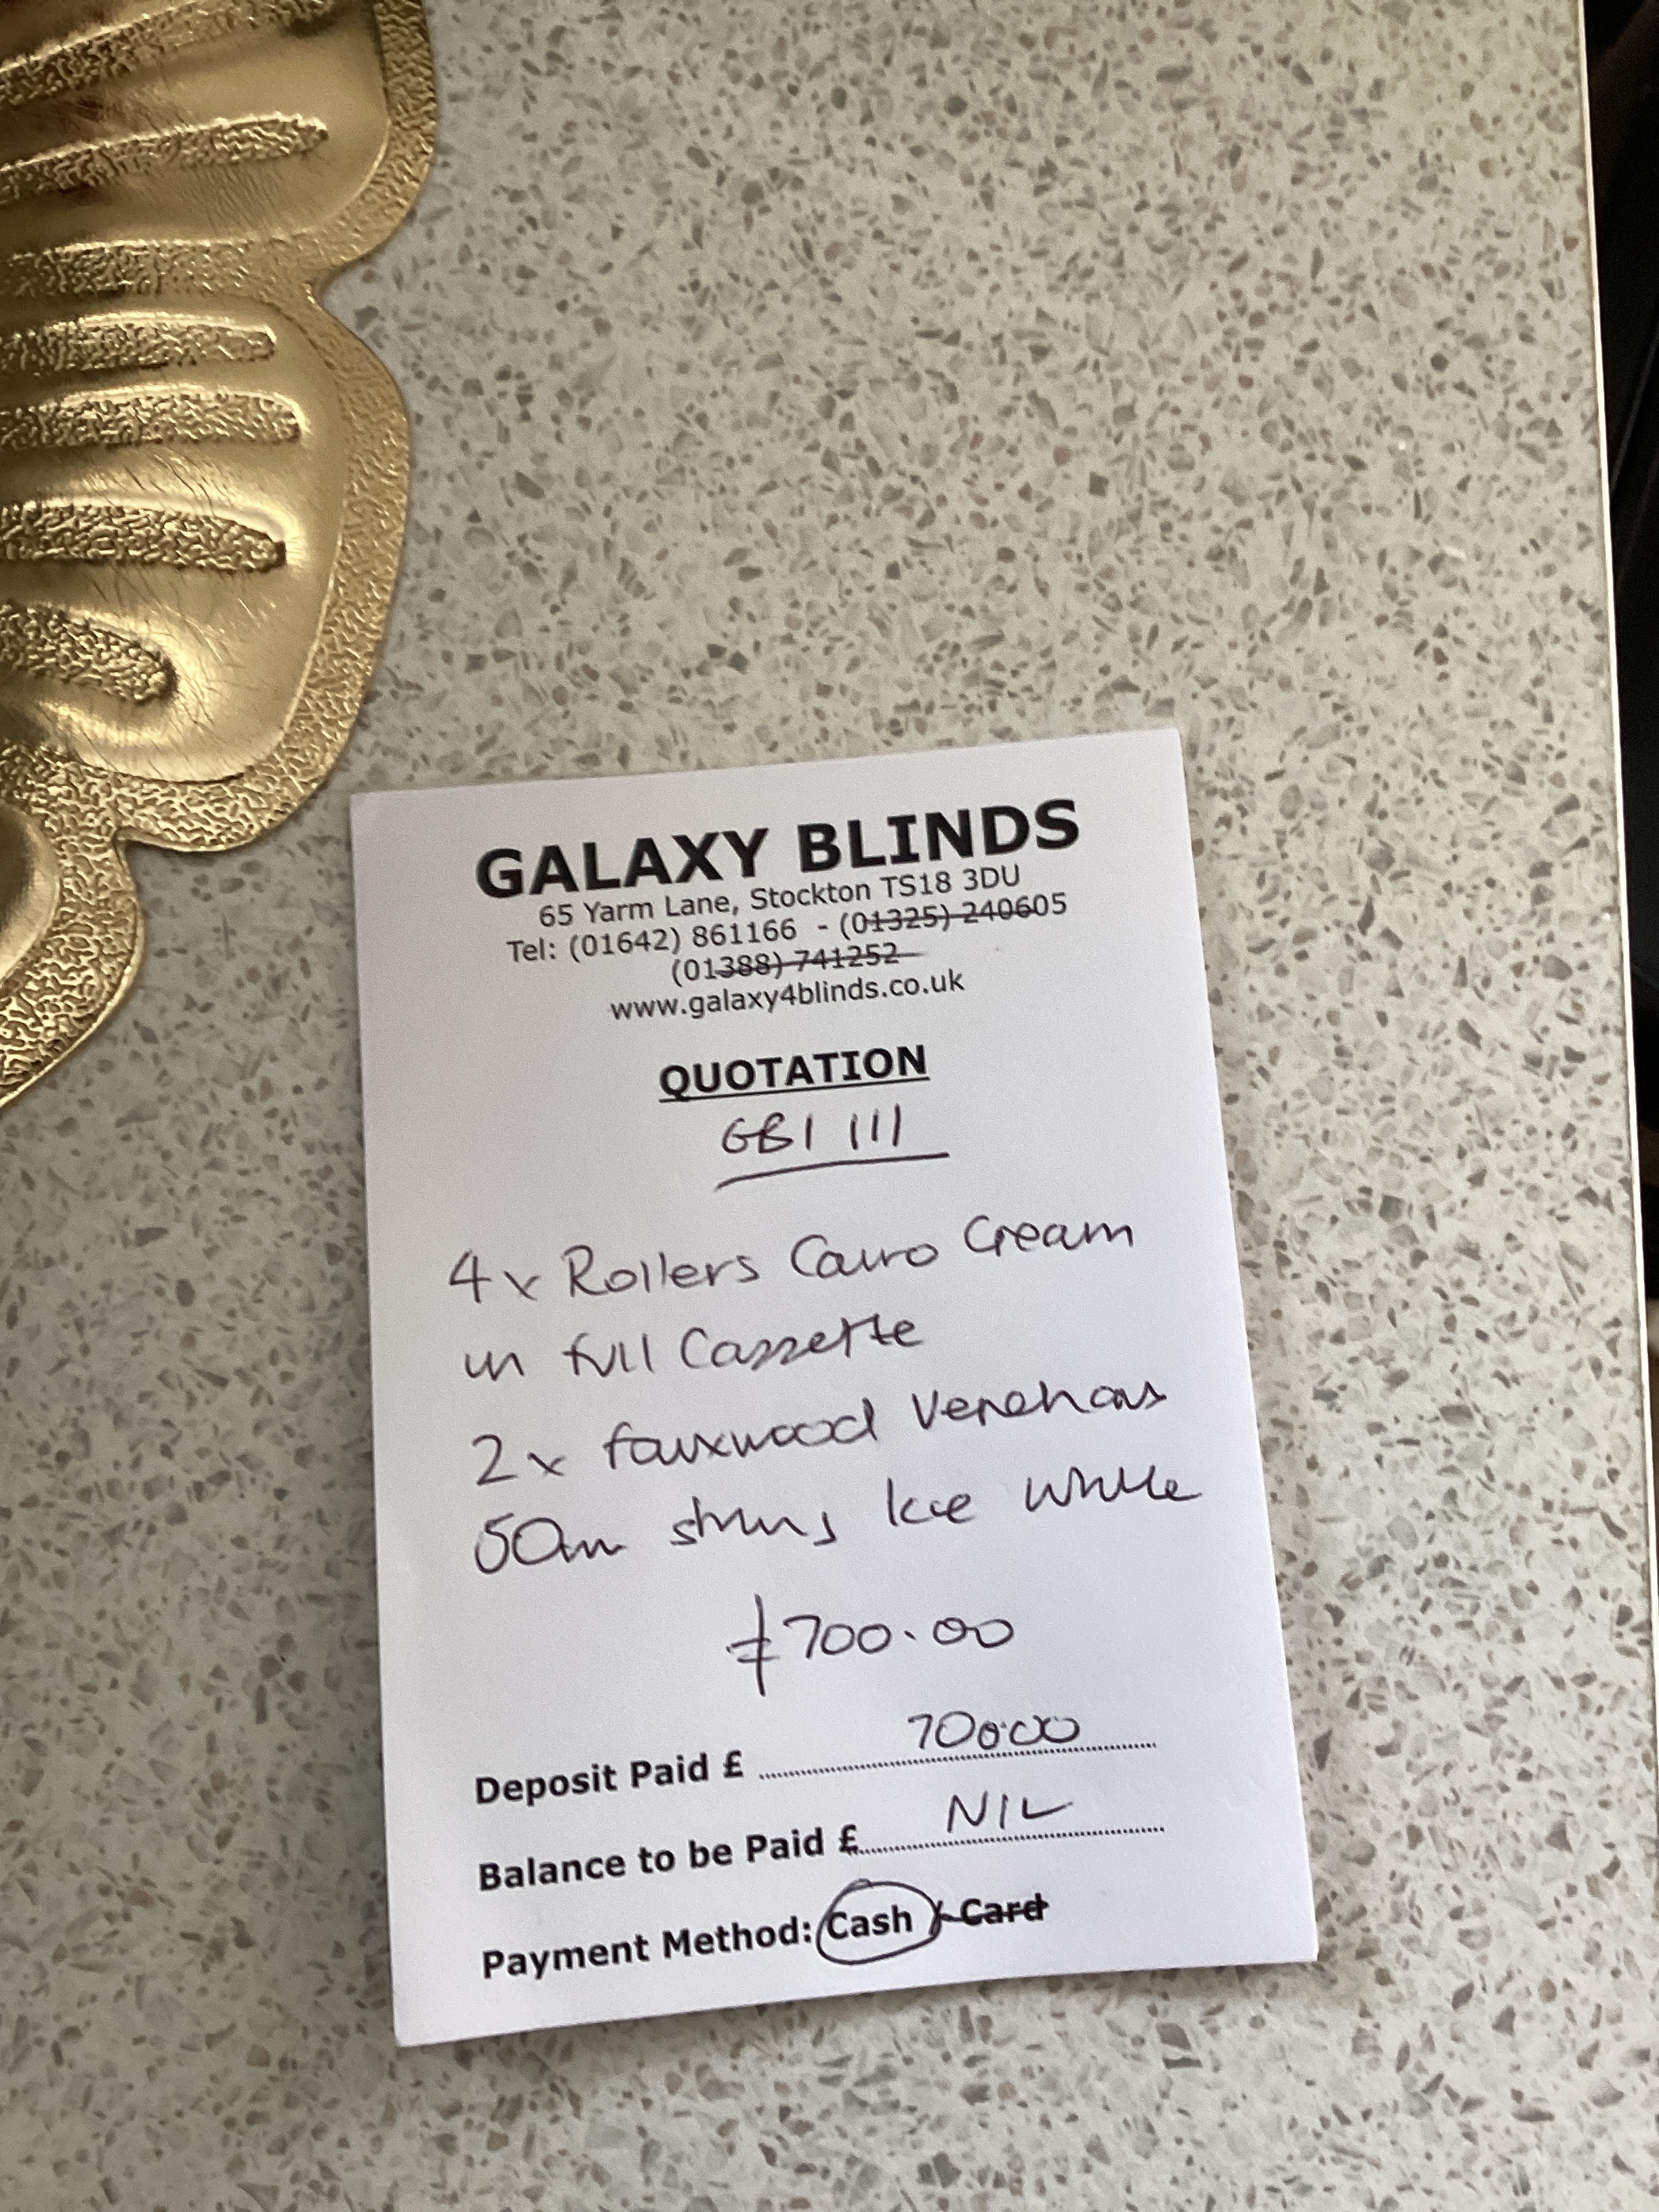 GALAXY BLINDS
65 Yarm Lane, Stockton TS18 3DU
Tel: (01642) 861166 - (01325) 240605
(01388) 741252
www.galaxy4blinds.co.uk
QUOTATION
GB1 111
4x Rollers Cairo Cream
in full Cassette
2x fauxwood Venetians
50m strings Ice White
£700.00
Deposit Paid £ 700.00
Balance to be Paid £ NIL
Payment Method: Cash / Card